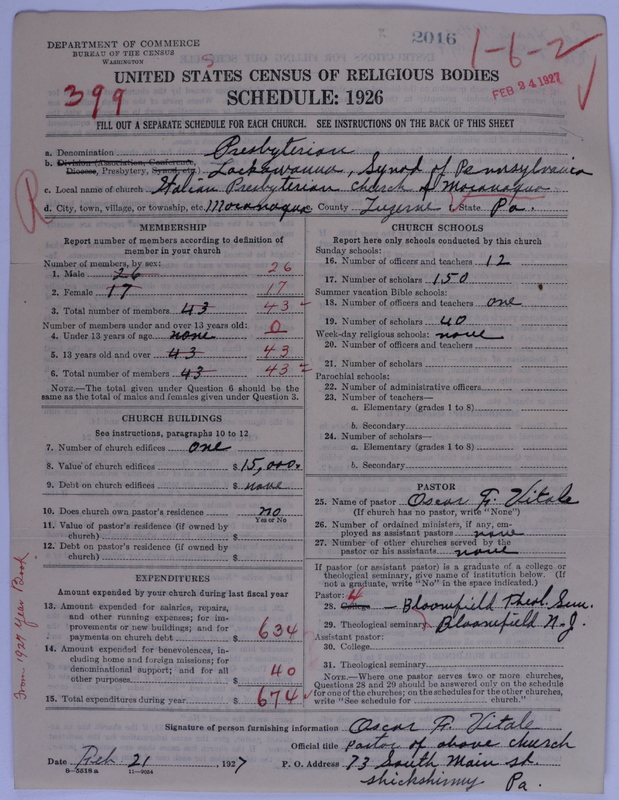 2016
1-6-2
DEPARTMENT OF COMMERCE
BUREAU OF THE CENSUS
WASHINGTON
FEB 24 1927
UNITED STATES CENSUS OF RELIGIOUS BODIES
399
SCHEDULE: 1926
FILL OUT A SEPARATE SCHEDULE FOR EACH CHURCH. SEE INSTRUCTIONS ON THE BACK OF THIS SHEET
a. Denomination Presbyterian
b. Division (Association, Conference, Diocese, Presbytery, Synod, etc.) Lackawanna, Synod of Pennsylvania
c. Local name of church Italian Presbyterian Church of Mocanaqua
d. City, town, village, or township, etc. Mocanaqua County Luzerne State Pa.
R
MEMBERSHIP
Report number of members according to definition of member in your church
Number of members, by sex:
1. Male 26 26
2. Female 17 17
3. Total number of members 43 43
Number of members under and over 13 years old:
4. Under 13 years of age none 0
5. 13 years old and over 43 43
6. Total number of members 43 43
NOTE.—The total given under Question 6 should be the same as the total of males and females given under Question 3.
CHURCH BUILDINGS
See instructions, paragraphs 10 to 12
7. Number of church edifices one
8. Value of church edifices $ 15,000.
9. Debt on church edifices $ none
10. Does church own pastor's residence? no
Yes or No
11. Value of pastor's residence (if owned by church) $
12. Debt on pastor's residence (if owned by church) $
EXPENDITURES
Amount expended by church during last fiscal year
13. Amount expended for salaries, repairs, and other running expenses; for improvements or new buildings; and for payments on church debt $ 634
14. Amount expended for benevolences, including home and foreign missions; for denominational support; and for all other purposes $ 40
15. Total expenditures during year $ 674
From 1927 Year Book
CHURCH SCHOOLS
Report here only schools conducted by this church
Sunday schools:
16. Number of officers and teachers 12
17. Number of scholars 150
Summer vacation Bible schools:
18. Number of officers and teachers one
19. Number of scholars 40
Week-day religious schools: none
20. Number of officers and teachers
21. Number of scholars
Parochial schools:
22. Number of administrative officers
23. Number of teachers—
a. Elementary (grades 1 to 8)
b. Secondary
24. Number of scholars—
a. Elementary (grades 1 to 8)
b. Secondary
PASTOR
25. Name of pastor Oscar F. Vitale
(If church has no pastor, write "None")
26. Number of ordained ministers, if any, employed as assistant pastors none
27. Number of other churches served by the pastor or his assistants none
If pastor (or assistant pastor) is a graduate of a college or theological seminary, give name of institution below. (If not a graduate, write "No" in the space indicated.)
Pastor:
28. College — Bloomfield Theol. Sem.
29. Theological seminary Bloomfield N.J.
Assistant pastor:
30. College
31. Theological seminary
NOTE.—Where one pastor serves two or more churches, Questions 28 and 29 should be answered only on the schedule for one of the churches; on the schedules for the other churches, write "See schedule for church."
Signature of person furnishing information Oscar F. Vitale
Official title Pastor of above church
Date Feb 21 1927 P. O. Address 73 South Main st.
Shickshinny Pa.
6—5518a 11—9024